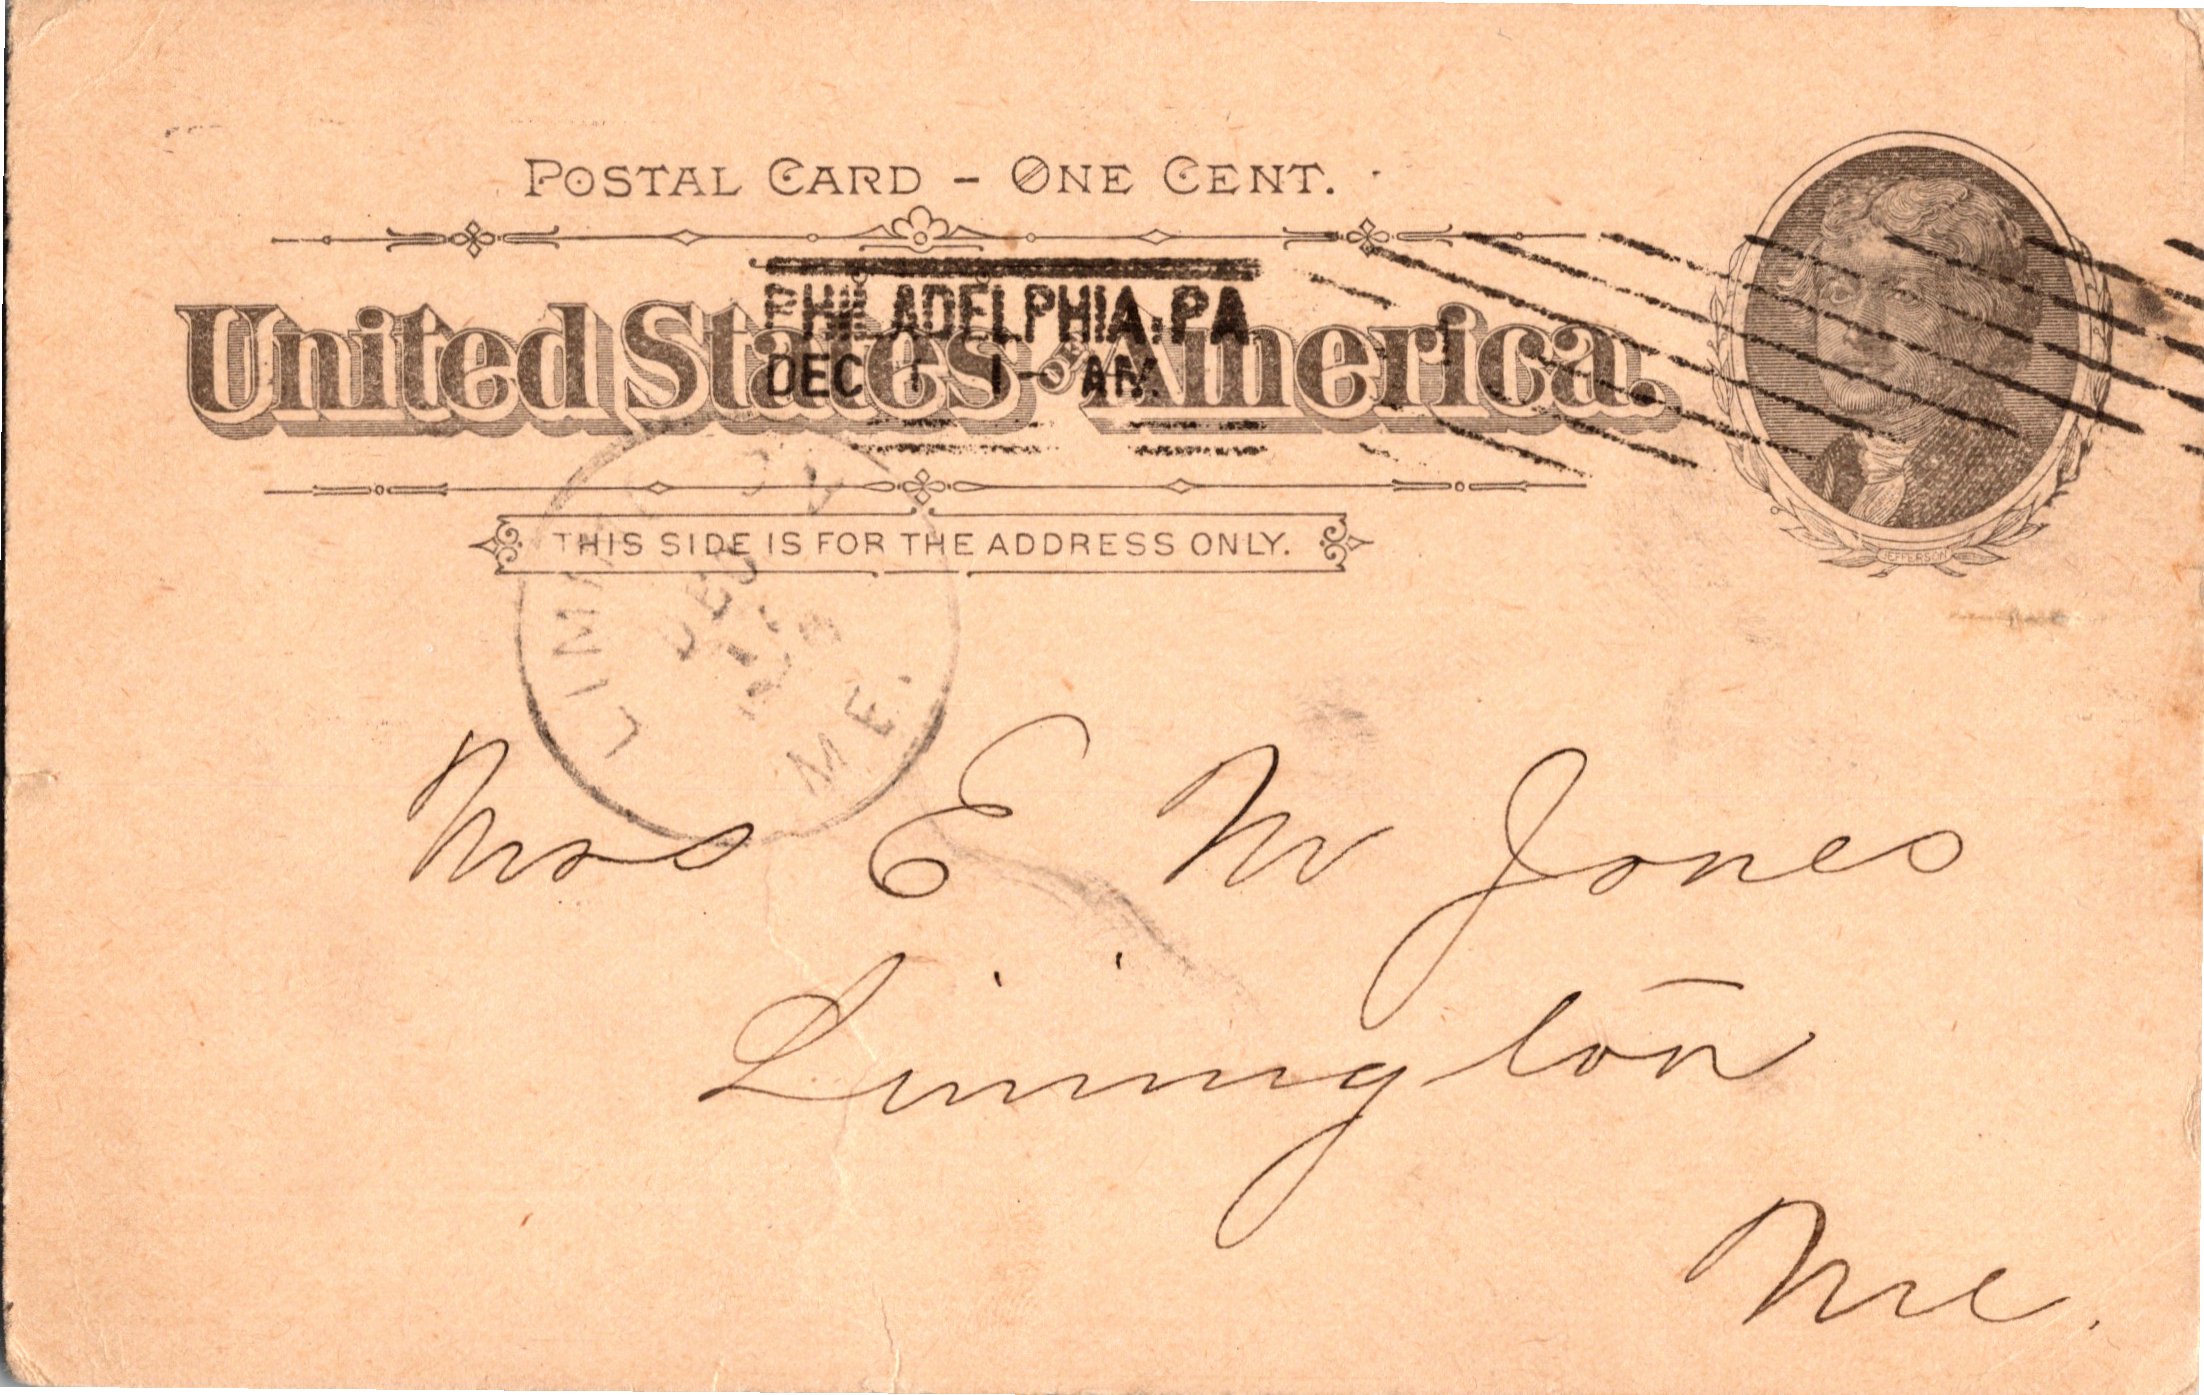 POSTAL CARD – ONE CENT.
United States OF America.
PHILADELPHIA, PA
DEC 1 1– AM
THIS SIDE IS FOR THE ADDRESS ONLY.
JEFFERSON
DEC
ME.
Mrs E M Jones
Limington
Me.